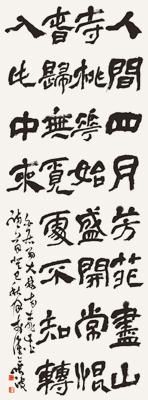 人間四月芳菲盡山
寺桃華始盛開常恨
春歸無覓處不知轉
入此中來
大林寺桃花